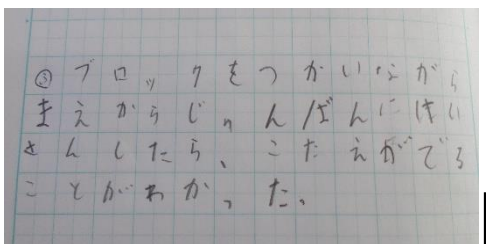 ③ブロックをつかいながら
まえからじゅんばんにけい
さんしたら、こたえがでる
ことがわかった。